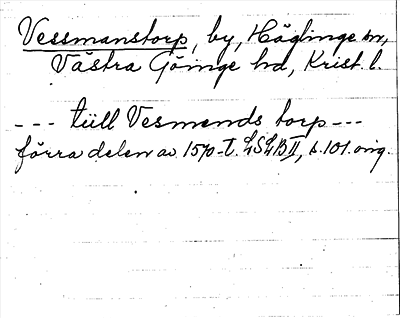 Vessmanstorp, by, Häglinge sn,
Västra Göinge hd, Krist. l.
--- tiill Vesmends torp ---
förra delen av 1570-t. LSLB II, s. 101. orig.